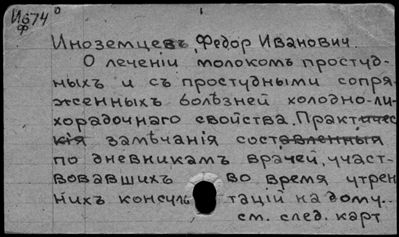 И674
Ф
Иноземцевъ Федор Иванович.
О лечении молоком простуд-
ныхъ и съ простудными сопря-
женныхъ болѣзней холодно-ли-
хорадочнаго свойства. Практичес-
кія замѣчанія составленныя
по дневникамъ врачей, участ-
вовавшихъ во время утрен
нихъ консуль таций на дому..
см. след. карт